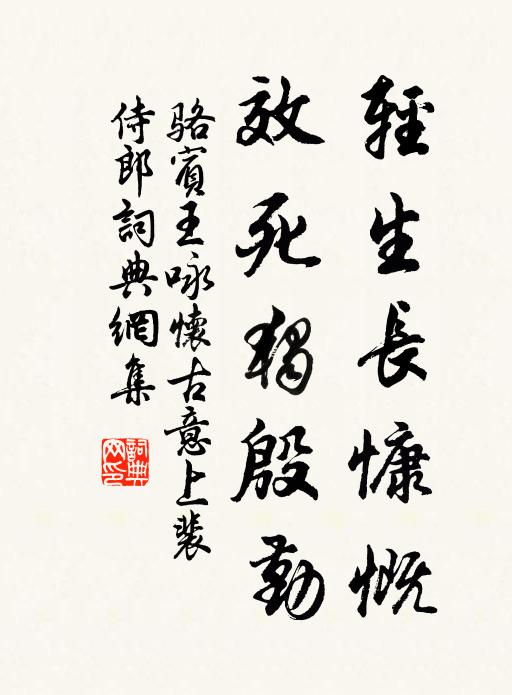 輕生長慷慨
效死獨殷勤
駱賓王咏懷古意上裴
侍郎詞典網集
詞典
网印